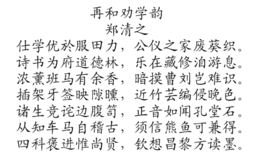 再和劝学韵
郑清之
仕学优於服田力，公仪之家废葵织。
诗书为府道德林，乐在藏修泊游息。
浓薰班马有余香，暗摸曹刘岂难识。
插架牙签映隙曛，近竹芸编侵晚色。
诸生竞诧边腹笥，正音如闻孔堂石。
从知车马自稽古，须信熊鱼可兼得。
四科褒进惟尚贤，钦想昌黎方读墨。